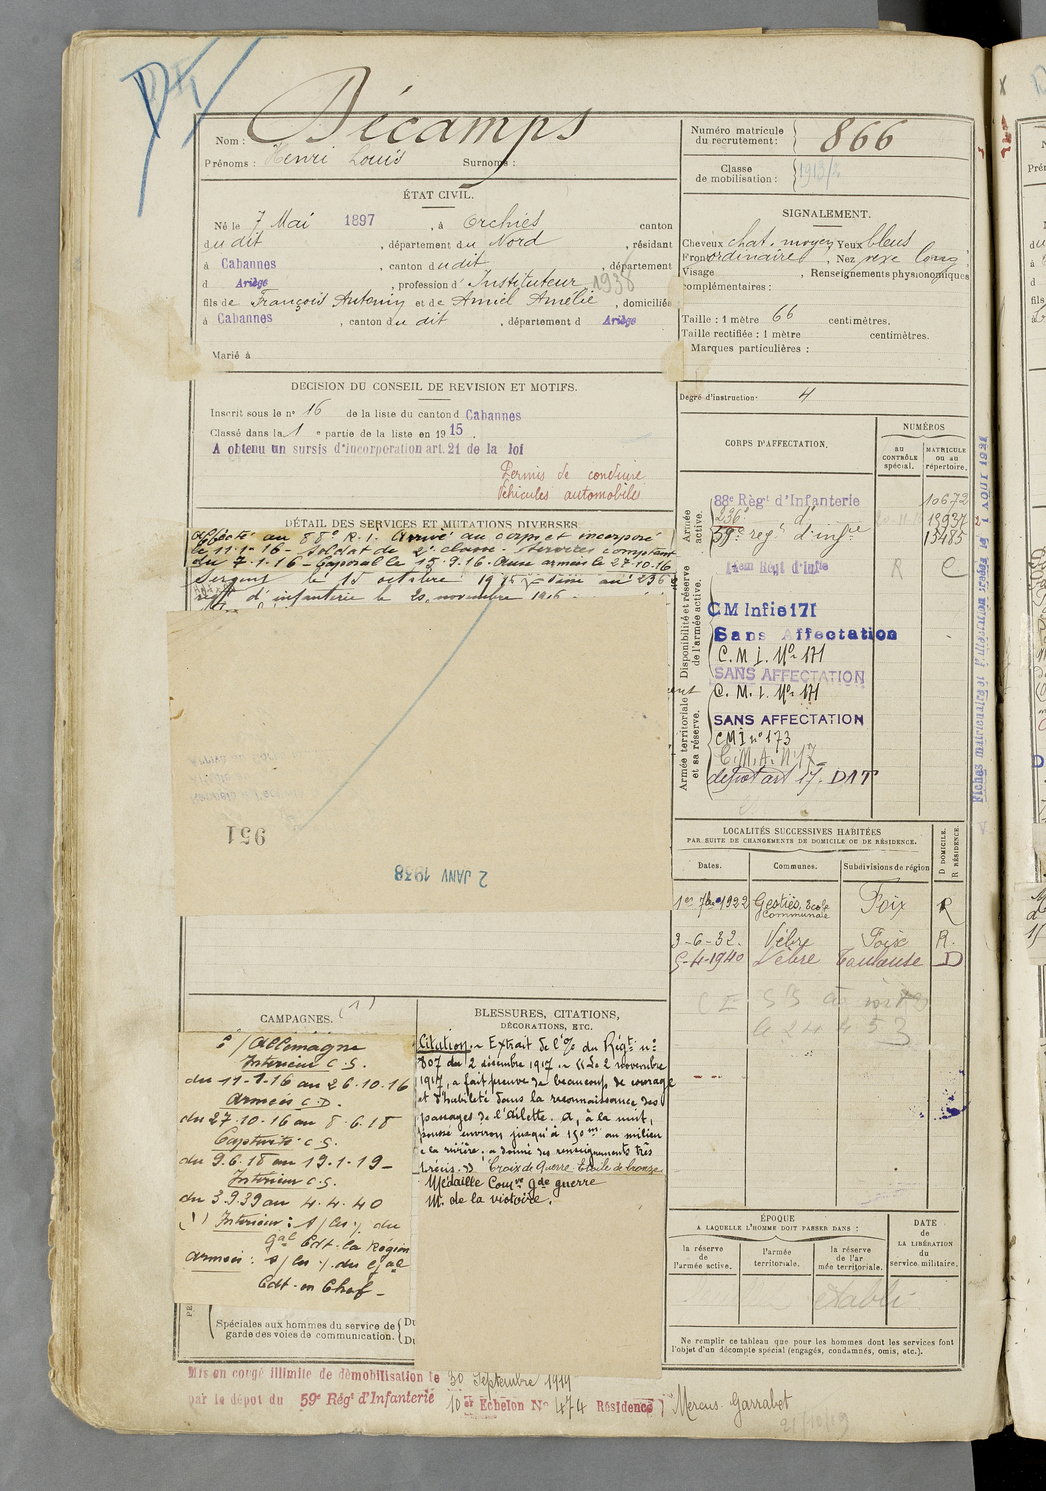 Nom : Décamps
Prénoms : Henri Louis Surnoms :
Numéro matricule du recrutement : 866
Classe de mobilisation : 1913/2
ÉTAT CIVIL.
Né le 7 Mai 1897, à Orchies canton
du dit, département du Nord, résidant
à Cabannes, canton du dit, département
d Ariège, profession d'Instituteur 1938
fils de François Antonin et de Amiel Amélie, domiciliés
à Cabannes, canton du dit, département d Ariège
Marié à
SIGNALEMENT.
Cheveux chat. moyen Yeux bleus
Front ordinaire, Nez rexe long
Visage , Renseignements physionomiques
complémentaires :
Taille : 1 mètre 66 centimètres.
Taille rectifiée : 1 mètre centimètres.
Marques particulières :
Degré d'instruction : 4
DECISION DU CONSEIL DE REVISION ET MOTIFS.
Inscrit sous le n° 16 de la liste du canton d Cabannes
Classé dans la 1e partie de la liste en 1915.
A obtenu un sursis d'incorporation art. 21 de la loi
Permis de conduire
Véhicules automobiles
DÉTAIL DES SERVICES ET MUTATIONS DIVERSES.
Affecté au 88e R.I. Arrivé au corps et incorporé
le 11-1-16 - Soldat de 2e classe - Services comptant
du 7-1-16 - Caporal le 15.9.16. Aux armées le 27-10-16
Sergent le 15 octobre
régt d'infanterie le 20 novembre 1916
951
2 JANV 1938
CORPS D'AFFECTATION.
NUMÉROS
au CONTRÔLE spécial.
MATRICULE ou au répertoire.
Armée active.
88e Régt d'Infanterie 10672
236e d° 13937
59e régt d'infie 13485
Disponibilité et réserve de l'armée active.
14em Régt d'Infie R C
CM Infie 171
Sans Affectation
C.M.I. No 171
SANS AFFECTATION
C.M.I. No 171
Armée territoriale et sa réserve.
SANS AFFECTATION
CMI n° 173
C.M.A. N.17
dépot art 17. DAT
LOCALITÉS SUCCESSIVES HABITÉES
PAR SUITE DE CHANGEMENTS DE DOMICILE OU DE RÉSIDENCE.
D DOMICILE.
R RÉSIDENCE.
Dates. Communes. Subdivisions de région
1er 7bre 1922 Gestiès, Ecole Communale Foix R
3-6-32- Vèbre Foix R.
5-4-1940 Vèbre Toulouse D
CAMPAGNES. (1)
C/Allemagne
Intérieur C.S.
du 11-1-16 au 26.10.16
Armées C.D.
du 27-10-16 au 8.6.18
Captivité C.S.
du 9.6.18 au 19.1.19-
Intérieur C.S.
du 3.9.39 au 4.4.40
(1) Intérieur : s/ les / du
Gal Cdt la Région
Armées : s/ les /. du Gal
Cdt en Chef -
BLESSURES, CITATIONS,
DÉCORATIONS, ETC.
Citation. - Extrait de l'O/ du Régt n°
807 du 2 décembre 1917. - « Le 2 novembre
1917, a fait preuve de beaucoup de courage
et d'habileté dans la reconnaissance des
passages de l'Ailette. A, à la nuit,
poussé environ jusqu'à 150 m au milieu
de la rivière ; a donné des renseignements très
précis. » Croix de Guerre Etoile de bronze
Médaille Comve gde guerre
M. de la victoire.
ÉPOQUE
A LAQUELLE L'HOMME DOIT PASSER DANS :
la réserve de l'armée active.
l'armée territoriale.
la réserve de l'armée territoriale.
DATE
DE
LA LIBÉRATION
du
service militaire.
Spéciales aux hommes du service de
garde des voies de communication.
Ne remplir ce tableau que pour les hommes dont les services font
l'objet d'un décompte spécial (engagés, condamnés, omis, etc.).
Mis en congé illimité de démobilisation le 30 Septembre 1919
par le dépot du 59e Régt d'Infanterie 10er Echelon No 474 Résidence Mercus-Garrabet
21/10/19